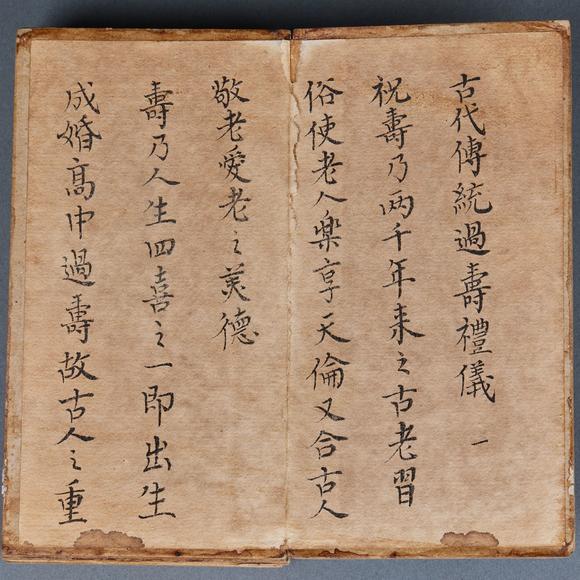 古代傳統過壽禮儀 一
祝壽乃两千年来之古老習
俗使老人樂享天倫又合古人
敬老愛老之美德
壽乃人生四喜之一即出生
成婚高中過壽故古人之重